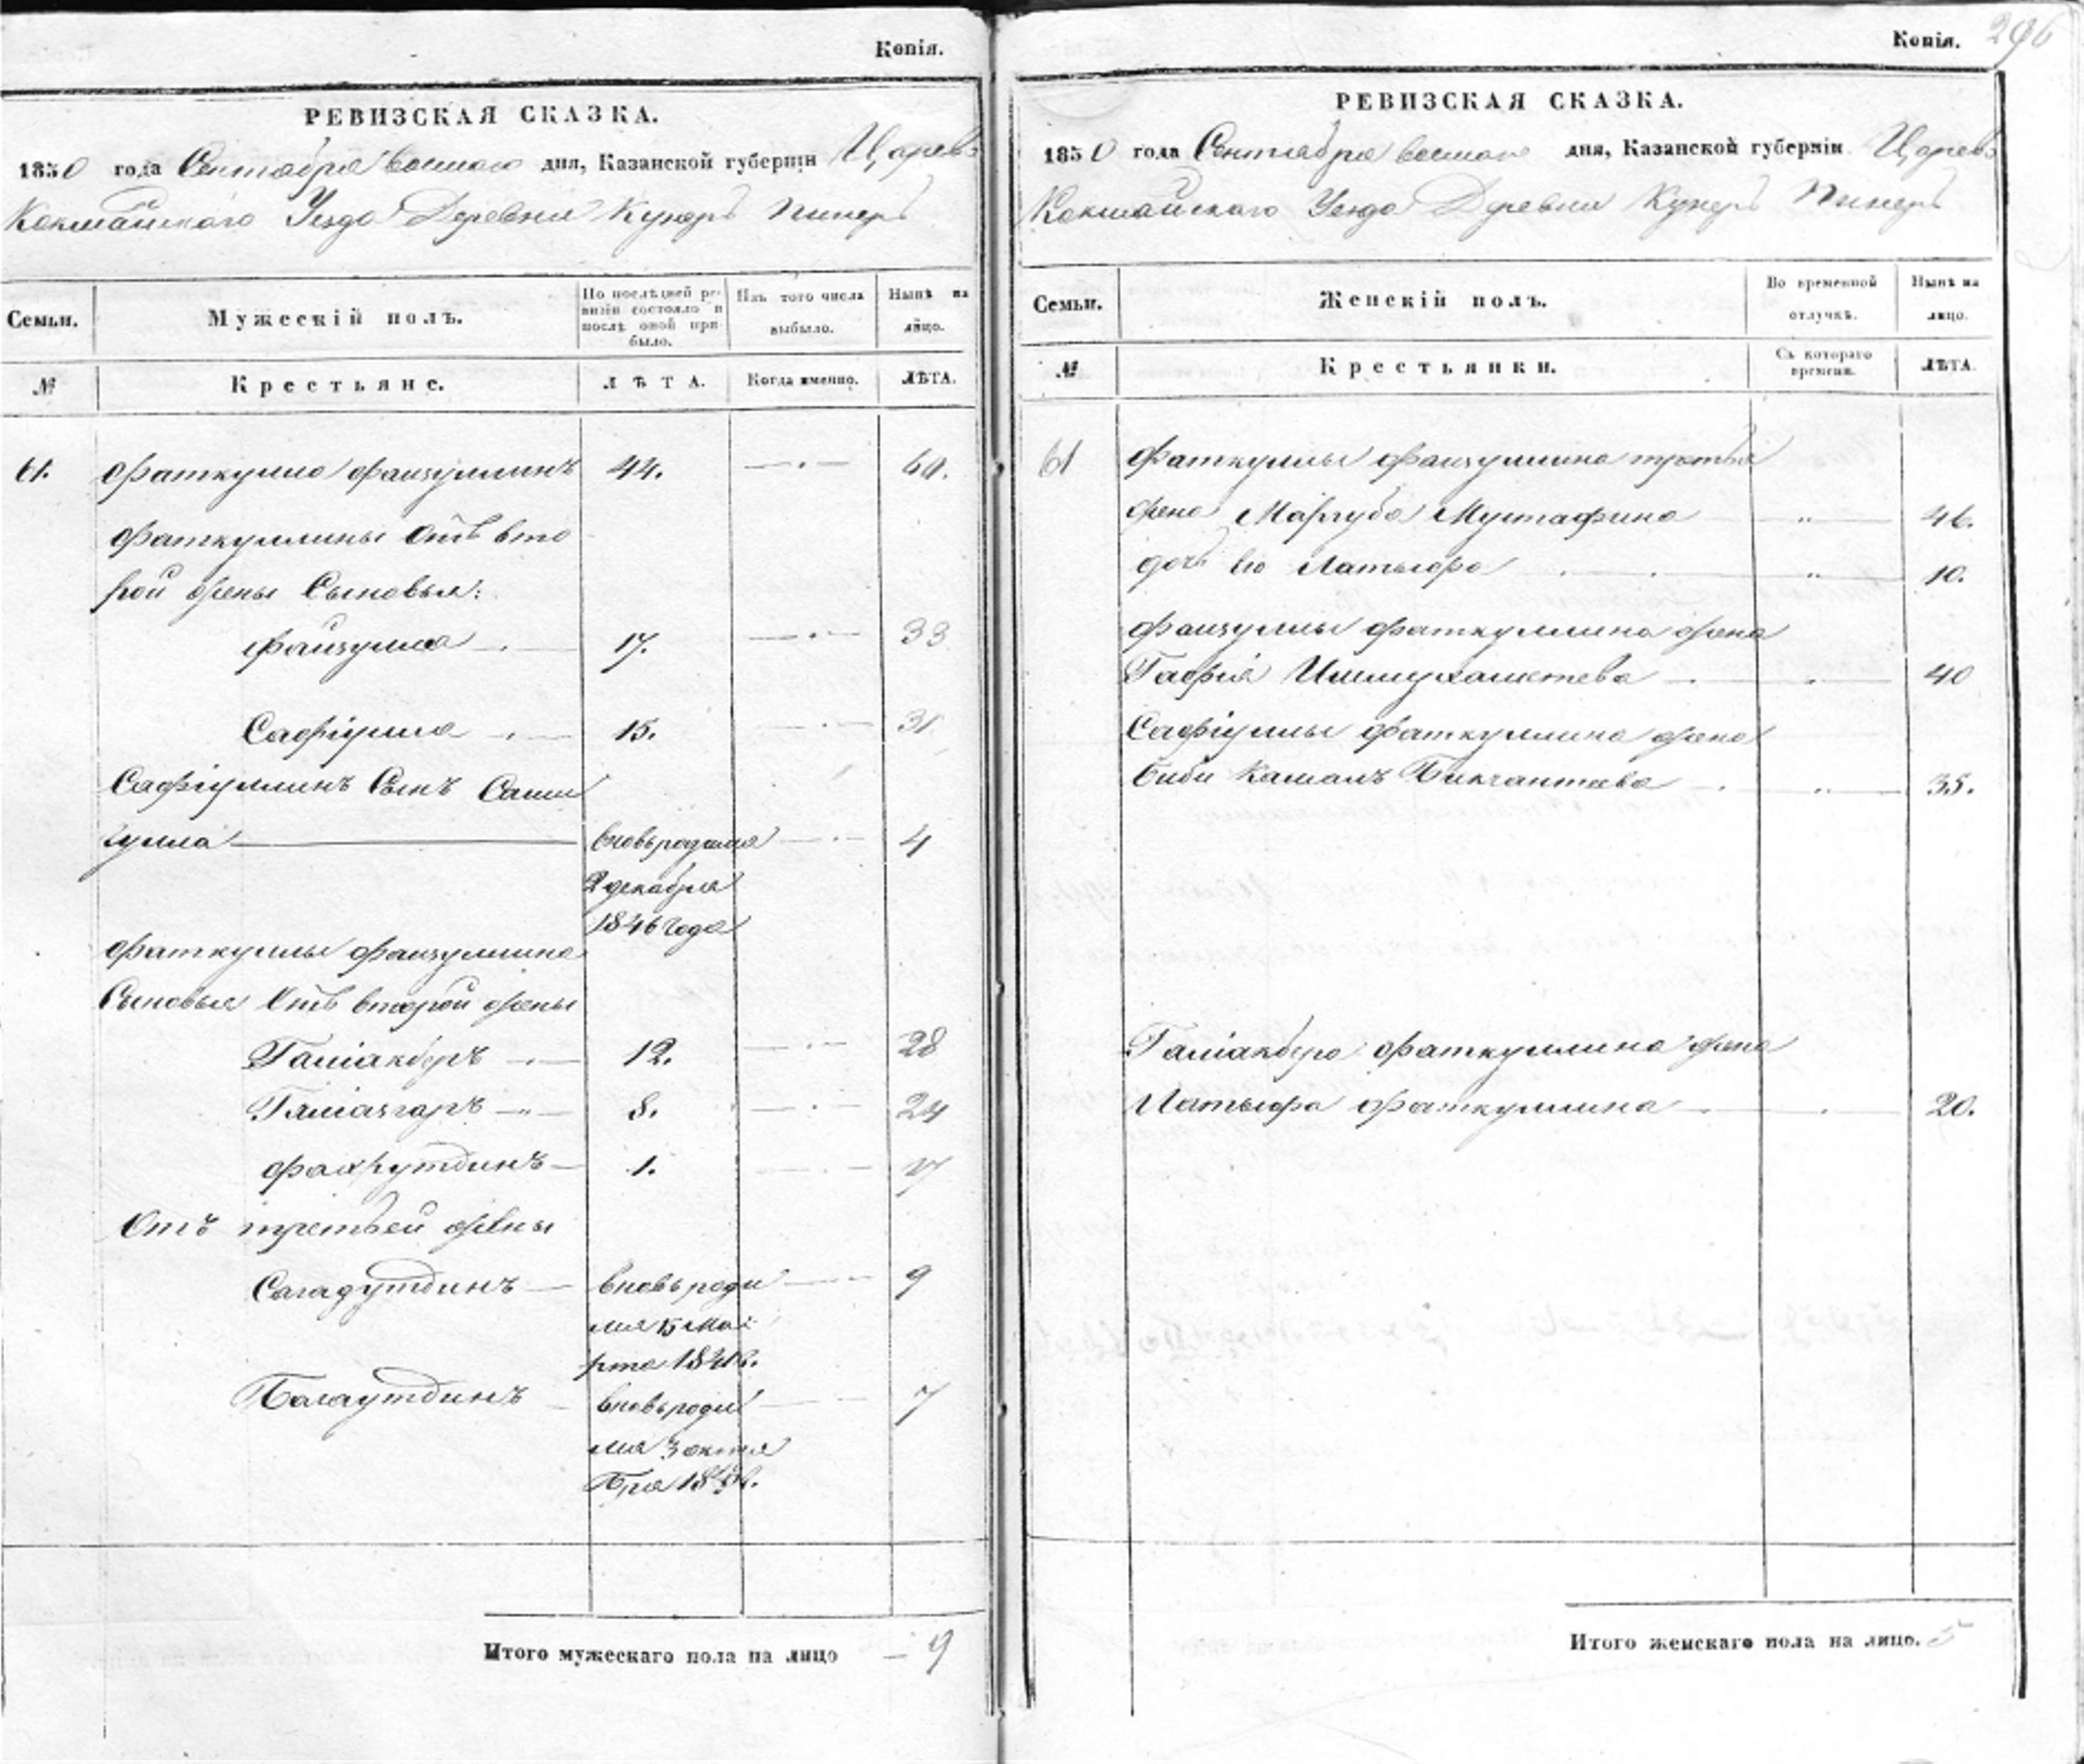 Копія.
РЕВИЗСКАЯ СКАЗКА.
1850 года Сентября восмаго дня, Казанской губерніи Царево
Кокшайскаго Уезда Деревни Кунеръ Пинеръ
Семьи. Мужескій полъ. По послѣдней ревизіи состояло и послѣ оной прибыло. Изъ того числа выбыло. Нынѣ на лицо.
№ Крестьяне. ЛѢТА. Когда именно. ЛѢТА.
61. Фаткулла Файзуллинъ 44. 60.
Фаткуллины Отъ вто
рой жены Сыновья:
Файзулла 17. 33
Сафіулла 15. 31
Сафіуллинъ Сынъ Сами
гулла вновьродился 4
2 декабря
1846 года
Фаткуллы Файзуллина
Сыновья Отъ второй жены
Галіакберъ 12. 28
Галіазгаръ 8. 24
Фахрутдинъ 1. 17
Отъ третьей жены
Сагадутдинъ вновьроди 9
лся 15 Ма
рта 1841г.
Багаутдинъ вновьроди 7
лся 3 октя
бря
Итого мужескаго пола на лицо 9
Копія. 296
РЕВИЗСКАЯ СКАЗКА.
1850 года Сентября восмаго дня, Казанской губерніи Царево
Кокшайскаго Уезда Деревни Кунеръ Пинеръ
Семьи. Женскій полъ. Во временной отлучкѣ. Нынѣ на лицо.
№ Крестьянки. Съ котораго времени. ЛѢТА.
61 Фаткуллы Файзуллина третья
жена Маргуба Мустафина 46.
дочь его Латыфа 10.
Файзуллы Фаткуллина жена
Гафія Ишмухаметева 40
Сафіуллы Фаткуллина жена
Биби Камалъ Бикчантаева 35.
Галіакбера Фаткуллина жена
Латыфа Фаткуллина 20.
Итого женскаго пола на лицо. 5